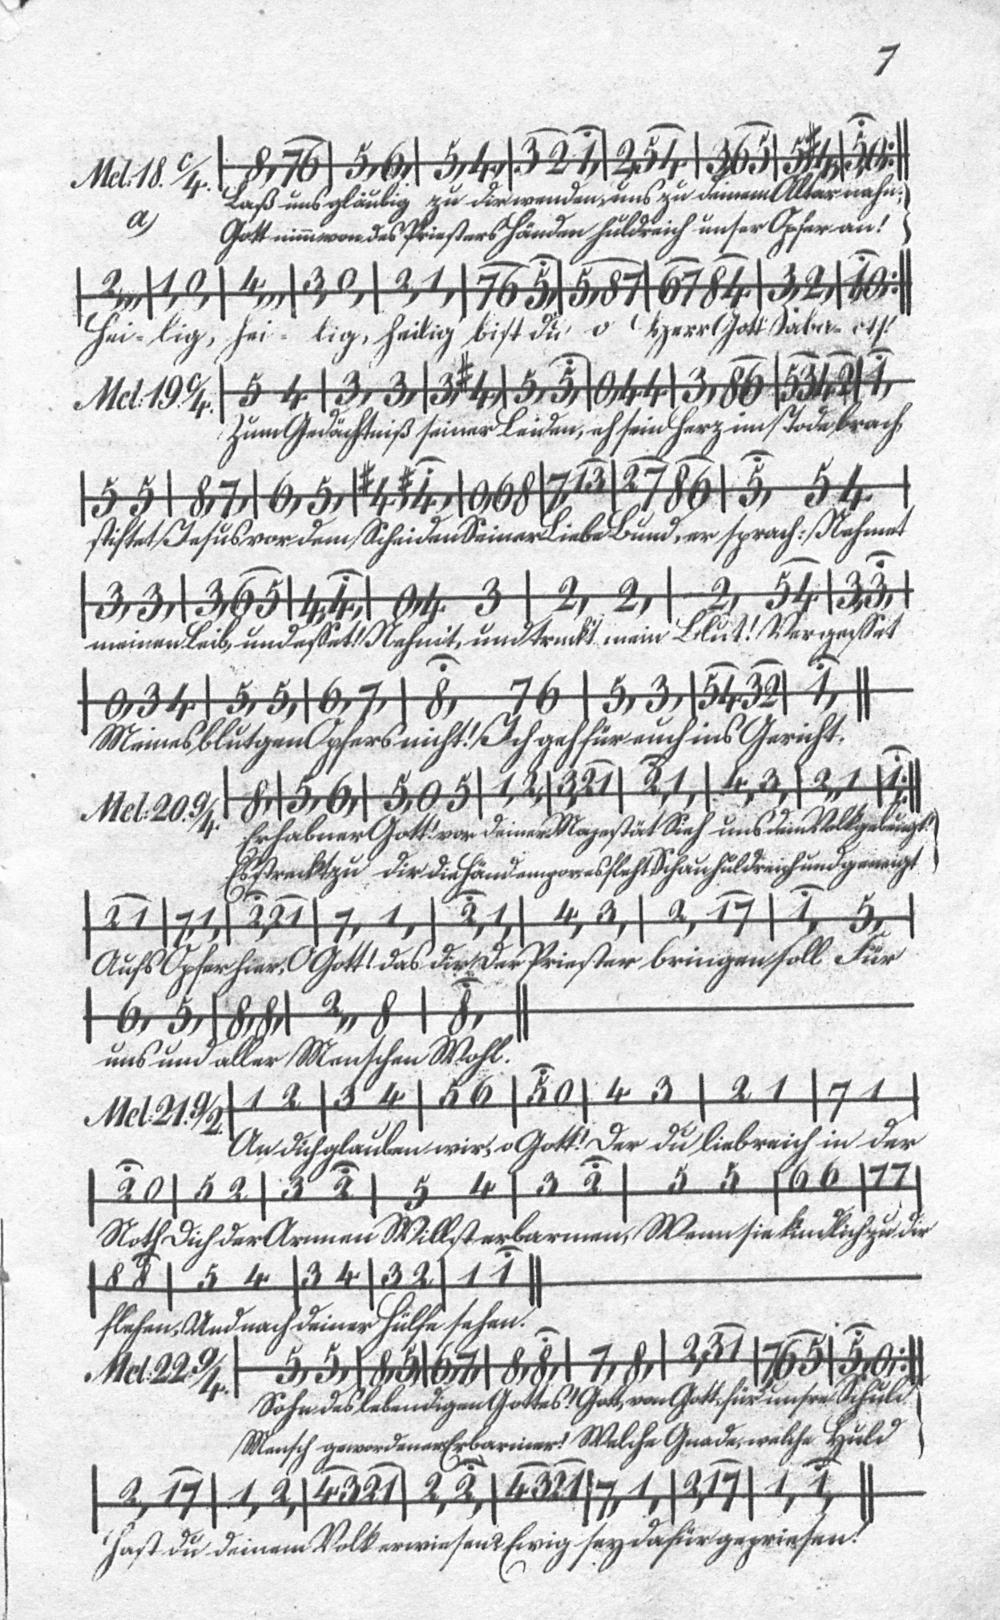 7
Mel: 18. C/4. 8, 76 | 5, 6, | 5, 4, | 3 2 1, | 2, 5 4 | 3 6 5 | 5, #4, | 5, 0 :||
a) Laß uns gläubig zu dir wenden, uns zu deinem Altar nahn;
Gott nimm von des Priesters Händen huldreich unser Opfer an!
2,,, | 1, 0, | 4,,, | 3, 0, | 2, 1, | 7 6 5, | 5, 8 7 | 6 7 8 4 | 3, 2, | 1, 0 :||
Hei - lig, hei - lig, heilig bist du o Herr Gott Saba - oth!
Mel: 19. C/4. 5 4 | 3, 3, | 3, #4, | 5, 5, | 0, 4 4 | 3, 8 6 | 5 3 4, 2 | 1,
Zum Gedächtniß seiner Leiden, eh sein Herz im Tode brach,
5 5 | 8, 7, | 6, 5, | #4, #4, | 0, 6 8 | 7, 1 3 | 2 7 8 6 | 5, 5 4 |
stiftet Jesus vor dem Scheiden Seiner Liebe Bund, er sprach: Nehmet
3, 3, | 3, 6 5 | 4, 4, | 0, 4 3 | 2, 2, | 2, 5 4 | 3, 3, |
meinen Leib, und esset! Nehmt, und trinkt mein Blut! Vergesset
0, 3 4 | 5, 5, | 6, 7, | 8, 7 6 | 5, 3, | 5 4 3 2 | 1, ||
Meines blutgen Opfers nicht! Ich geh für euch ins Gericht.
Mel: 20. C/4. 8, | 5, 6, | 5, 0 5 | 1, 2, | 3, 2 1 | 2, 1, | 4, 3, | 2,, 1 | 1, :||
Erhabner Gott! vor deiner Majestät Sieh uns dein Volk gebeugt!
Es streckt zu dir die Hände empor es fleht Schau huldreich und geneigt
2 1 | 7, 1, | 2, 2 1 | 7, 1, | 2, 1, | 4, 3, | 2, 1 7 | 1, 5, |
Aufs Opfer hier, O Gott! das dir Der Priester bringen soll Für
6, 5, | 8, 8, | 2,, 8 | 8, ||
uns und aller Menschen Wohl.
Mel: 21. 2/2. 1 2 | 3 4 | 5 6 | 5 0 | 4 3 | 2 1 | 7 1 |
An dich glauben wir, o Gott! Der du liebreich in der
2 0 | 5 2 | 3 2 | 5 4 | 3 2 | 5 5 | 6 6 | 7 7 |
Noth Dich der Armen Willst erbarmen, Wenn sie kindlich zu dir
8 8 | 5 4 | 3 4 | 3 2 | 1 1 ||
flehen, Und nach deiner Hülfe sehen.
Mel: 22. 2/4. 5, 5, | 8, 5, | 6, 7, | 8, 8, | 7, 8, | 2, 3 1 | 7 6 5 | 5, 0, :||
Sohn des lebendigen Gottes! Gott, von Gott, für unsre Schuld
Mensch gewordener Erbarmer! Welche Gnade, welche Huld
2, 1 7 | 1, 2, | 4 3 2 1 | 2, 2, | 4 3 2 1 | 7, 1, | 2, 1 7 | 1, 1, ||
Hast du deinem Volk erwiesen? Ewig sey dafür gepriesen!